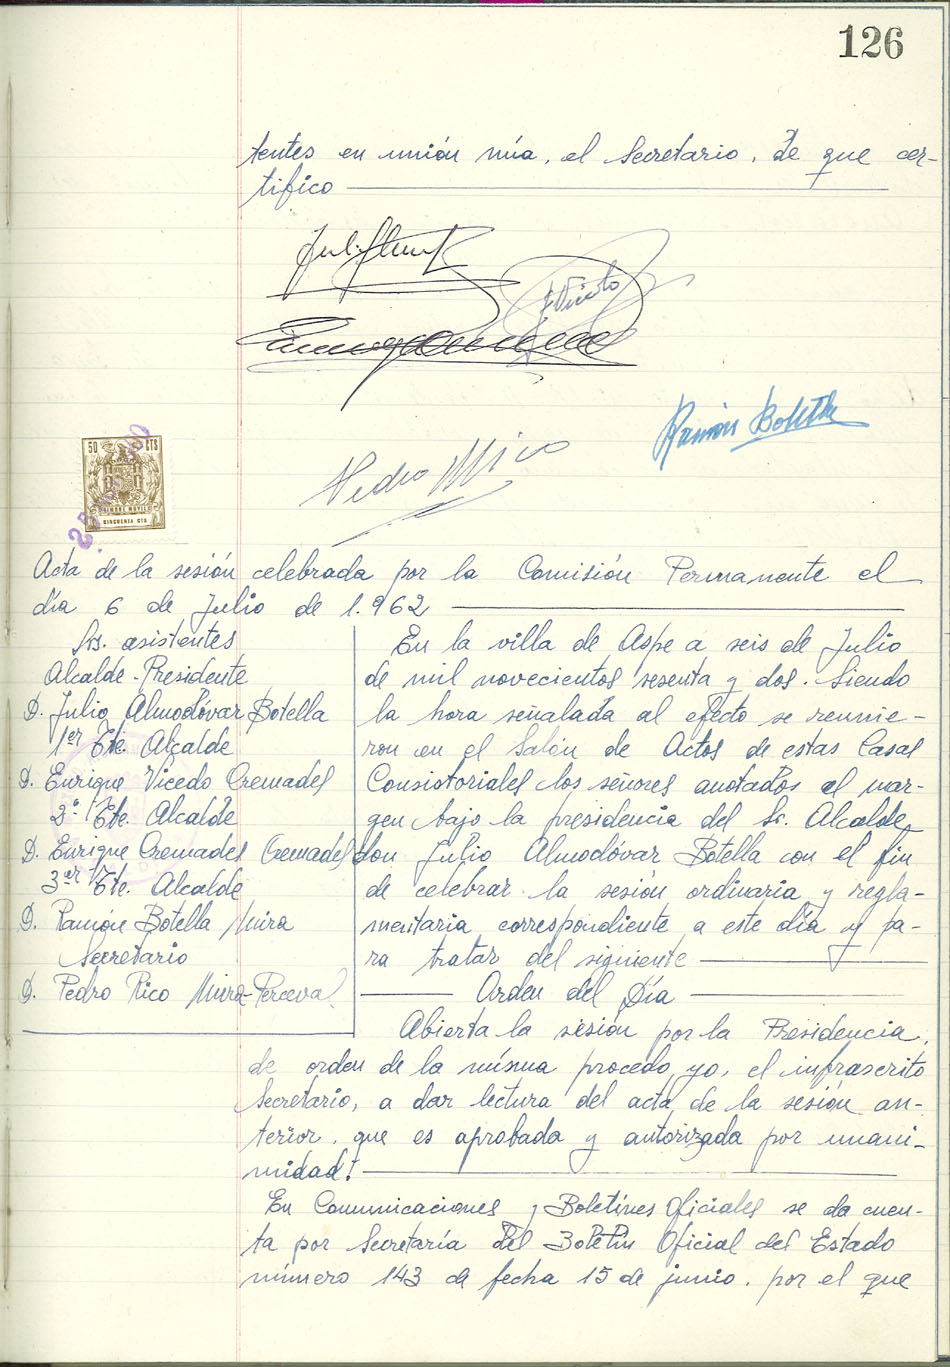 126
tentes en unión mía, el Secretario, de que cer-
tifico
Ramón Botella
Pedro Rico
50 CTS
TIMBRE MOVIL
CINCUENTA CTS
Acta de la sesión celebrada por la Comisión Permanente el
día 6 de Julio de 1.962
Srs. asistentes
Alcalde-Presidente
D. Julio Almodóvar Botella
1er Tte. Alcalde
D. Enrique Vicedo Cremades
2º Tte. Alcalde
D. Enrique Cremades Cremades
3er Tte. Alcalde
D. Ramón Botella Mira
Secretario
D. Pedro Rico Mira-Perceval
En la villa de Aspe a seis de Julio
de mil novecientos sesenta y dos. Siendo
la hora señalada al efecto se reunie-
ron en el Salón de Actos de estas Casas
Consistoriales los señores anotados al mar-
gen bajo la presidencia del Sr. Alcalde
don Julio Almodóvar Botella con el fin
de celebrar la sesión ordinaria y regla-
mentaria correspondiente a este día y pa-
ra tratar del siguiente
Orden del Día
Abierta la sesión por la Presidencia,
de orden de la misma procedo, yo, el infrascrito
Secretario, a dar lectura del acta de la sesión an-
terior, que es aprobada y autorizada por unani-
midad.
En Comunicaciones y Boletines Oficiales se da cuen-
ta por Secretaría del Boletín Oficial del Estado
número 143 de fecha 15 de junio, por el que